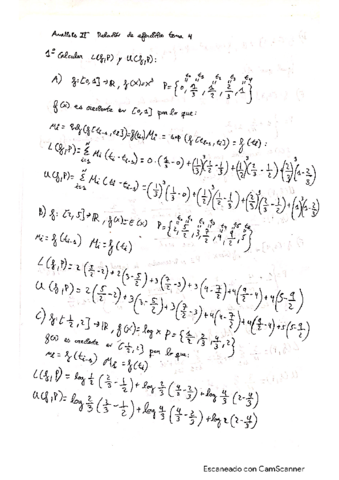 Análisis II Relación de ejercicios tema 4
1º Calcular L(f,P) y U(f,P):
A) f:[0,1]→R, f(x)=x³ P={0, 1/3, 1/2, 2/3, 1}
f(x) es creciente en [0,1] por lo que:
L(f,P)= 0·(1/3-0)+(1/3)³(1/2-1/3)+(1/2)³(2/3-1/2)+(2/3)³(1-2/3)
U(f,P)= (1/3)³(1/3-0)+(1/2)³(1/2-1/3)+(2/3)³(2/3-1/2)+(1)³(1-2/3)
B) f:[2,5]→R, f(x)=E(x) P={2, 5/2, 3, 7/2, 4, 9/2, 5}
mi=f(ti-1) Mi=f(ti)
L(f,P)=2(5/2-2)+2(3-5/2)+3(7/2-3)+3(4-7/2)+4(9/2-4)+4(5-9/2)
U(f,P)=2(5/2-2)+3(3-5/2)+3(7/2-3)+4(4-7/2)+4(9/2-4)+5(5-9/2)
C) f:[1/2,2]→R, f(x)=log x P={1/2, 2/3, 4/3, 2}
f(x) es creciente en [1/2,2] por lo que:
mi=f(ti-1) Mi=f(ti)
L(f,P)=log 1/2 (2/3-1/2)+log 2/3 (4/3-2/3)+log 4/3 (2-4/3)
U(f,P)=log 2/3 (2/3-1/2)+log 4/3 (4/3-2/3)+log 2 (2-4/3)
Escaneado con CamScanner